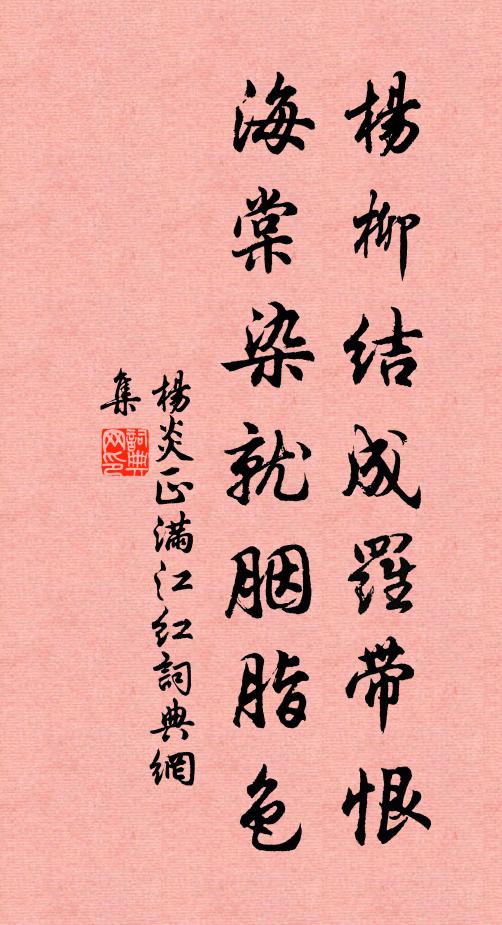 楊柳結成羅帶恨
海棠染就胭脂色
楊炎正滿江紅詞典網
集
詞典
网印